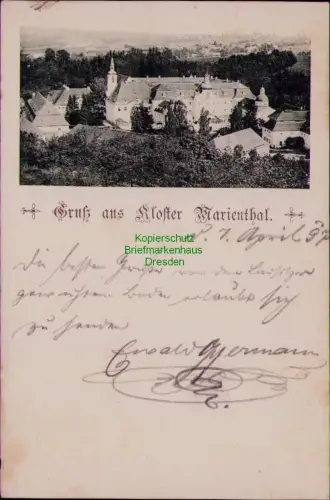 Gruß aus Kloster Marienthal.
Kopierschutz
Briefmarkenhaus
Dresden
7. April 97
Die besten Grüße von den
Boden erlaubt sich
zu senden
Ewald Germann